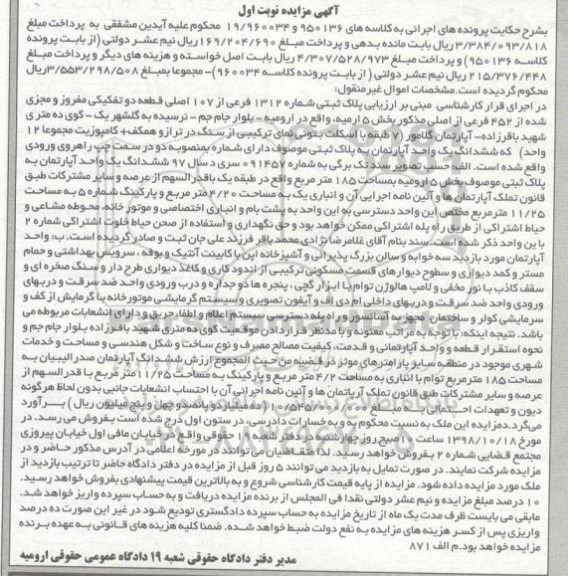 آگهی مزایده نوبت اول
بشرح حکایت پرونده های اجرائی به کلاسه های ۹۵۰۱۳۶ و ۱۹/۹۶۰۰۳۴ محکوم علیه آیدین مشفقی به پرداخت مبلغ
۳/۳۸۴/۰۹۳/۸۱۸ ریال بابت مانده بدهی و پرداخت مبلغ ۱۶۹/۲۰۴/۶۹۰ ریال نیم عشر دولتی (از بابت پرونده
کلاسه ۹۵۰۱۳۶) و پرداخت مبلغ ۴/۳۰۷/۵۲۸/۹۷۳ ریال بابت اصل خواسته و هزینه های دیگر و پرداخت مبلغ
۲۱۵/۳۷۶/۴۴۸ ریال نیم عشر دولتی (از بابت پرونده کلاسه ۹۶۰۰۳۴)- مجموعا بمبلغ ۳/۵۵۳/۲۹۸/۵۰۸ ریال
محکوم گردیده است. مشخصات اموال غیر منقول:
در اجرای قرار کارشناسی مبنی بر ارزیابی پلاک ثبتی شماره ۱۳۱۲ فرعی از ۱۰۷ اصلی قطعه دو تفکیکی مفروز و مجزی
شده از ۴۵۲ فرعی از اصلی مذکور بخش ۵ ارومیه، واقع در ارومیه - بلوار جام جم - نرسیده به گلشهر یک - کوی ده متری
شهید باقرزاده- آپارتمان گلامور (۷ طبقه با اسکلت بتونی نمای ترکیبی از سنگ در تراز و همکف+ کامپوزیت مجموعا ۱۲
واحد) که ششدانگ یک واحد آپارتمان به پلاک ثبتی موصوف دارای شماره بمنصوبه دو در سمت چپ راهروی ورودی
واقع شده است. الف حسب تصویر سند تک برگی به شماره ۰۹۱۴۵۷ سری د سال ۹۷ ششدانگ یک واحد آپارتمان به
پلاک ثبتی موصوف بخش ۵ ارومیه بمساحت ۱۸۵ متر مربع واقع در طبقه یک باقدرالسهم از عرصه و سایر مشترکات طبق
قانون تملک آپارتمان ها و آئین نامه اجرایی آن و انباری یک به مساحت ۴/۲۰ متر مربع و پارکینگ شماره ۵ به مساحت
۱۱/۲۵ مترمربع مختص این واحد دسترسی به این واحد به پشت بام و انباری اختصاصی و موتور خانه، محوطه مشاعی و
حیاط اشتراکی از طریق راه پله اشتراکی ممکن خواهد بود و حق نگهداری و استفاده از صحن حیاط خلوت اشتراکی شماره ۲
با این واحد ذکر شده است. سند بنام آقای غلامرضا نژادی محمد باقر فرزند علی جان ثبت و صادر گردیده است. ب: واحد
آپارتمان مورد بازدید سه خوابه و سالن بزرگ پذیرائی و آشپزخانه اپن با کابینت آنتیک و بوفه، سرویس بهداشتی و حمام
مستر و کمد دیواری و سطوح دیوارهای قسمت مسکونی ترکیبی از اندود کاری و کاغذ دیواری طرح دار و سنگ صخره ای و
سقف کاذب با نور مخفی و لامپ هالوژن توام با ابزار گچی، پنجره ها دو جداره و درب ورودی واحد ضد سرقت و دربهای
ورودی واحد ضد سرقت و دربهای داخلی ام دی اف و آیفون تصویری و سیستم گرمایشی موتورخانه با گرمایش از کف و
سرمایشی کولر و ساختمان مجهز به آسانسور و راه پله دسترسی سیستم اعلام و اطفا حریق و دارای انشعابات مربوطه می
باشد. نتیجه اینکه: با توجه به مراتب معنونه و با مدنظر قرار دادن موقعیت کوی ده متری شهید باقرزاده بلوار جام جم و
نحوه استقرار قطعه و واحد آپارتمانی و قدمت، کیفیت مصالح مصرف و نوع ساخت و شکل هندسی و مساحت و خدمات
شهری موجود در منطقه سایر پارامترهای موثر در قضیه من حیث المجموع ارزش ششدانگ آپارتمان صدرالبیان به
مساحت ۱۸۵ مترمربع توام با انباری به مساحت ۴/۲ متر مربع و پارکینگ به مساحت ۱۱/۲۵ متر مربع با قدرالسهم از
عرصه و سایر مشترکات طبق قانون تملک آپارتمان ها و آئین نامه اجرایی آن با احتساب انشعابات جانبی بدون لحاظ هرگونه
دیون و تعهدات احتمالی به مبلغ ۱۰/۵۴۵/۰۰۰/۰۰۰ (ده میلیارد و پانصد و چهل و پنج میلیون ریال) برآورد
می گردد. مزایده این ملک به نسبت محکوم به و به خسارات دادرسی در ستون اول درج شده است بفروش می رسد. در
مورخ ۱۳۹۸/۱۰/۱۸ ساعت ۱۰ صبح روز چهارشنبه در دفتر شعبه ۱۹ حقوقی واقع در خیابان مافی اول خیابان پیروزی
مجتمع قضایی شماره ۲ بفروش خواهد رسید. لذا متقاضیان می توانند در مورخه اعلامی در آدرس مذکور حاضر و در
مزایده شرکت نمایند. در صورت تمایل به بازدید می توانند ۵ روز قبل از مزایده در دفتر دادگاه حاضر تا ترتیب بازدید از
ملک مورد مزایده داده شود. مزایده از پایه قیمت کارشناسی شروع و به بالاترین قیمت پیشنهادی بفروش خواهد رسید.
۱۰ درصد مبلغ مزایده و نیم عشر دولتی نقدا فی المجلس از برنده مزایده دریافت و به حساب سپرده واریز خواهد شد.
مابقی می بایست ظرف مدت یک ماه از تاریخ مزایده به حساب سپرده دادگستری تودیع شود در غیر این صورت ده درصد
واریزی پس از کسر هزینه های مزایده به نفع دولت ضبط خواهد شد. ضمنا کلیه هزینه های قانونی به عهده برنده
مزایده خواهد بود. م الف ۸۷۱
مدیر دفتر دادگاه حقوقی شعبه ۱۹ دادگاه عمومی حقوقی ارومیه